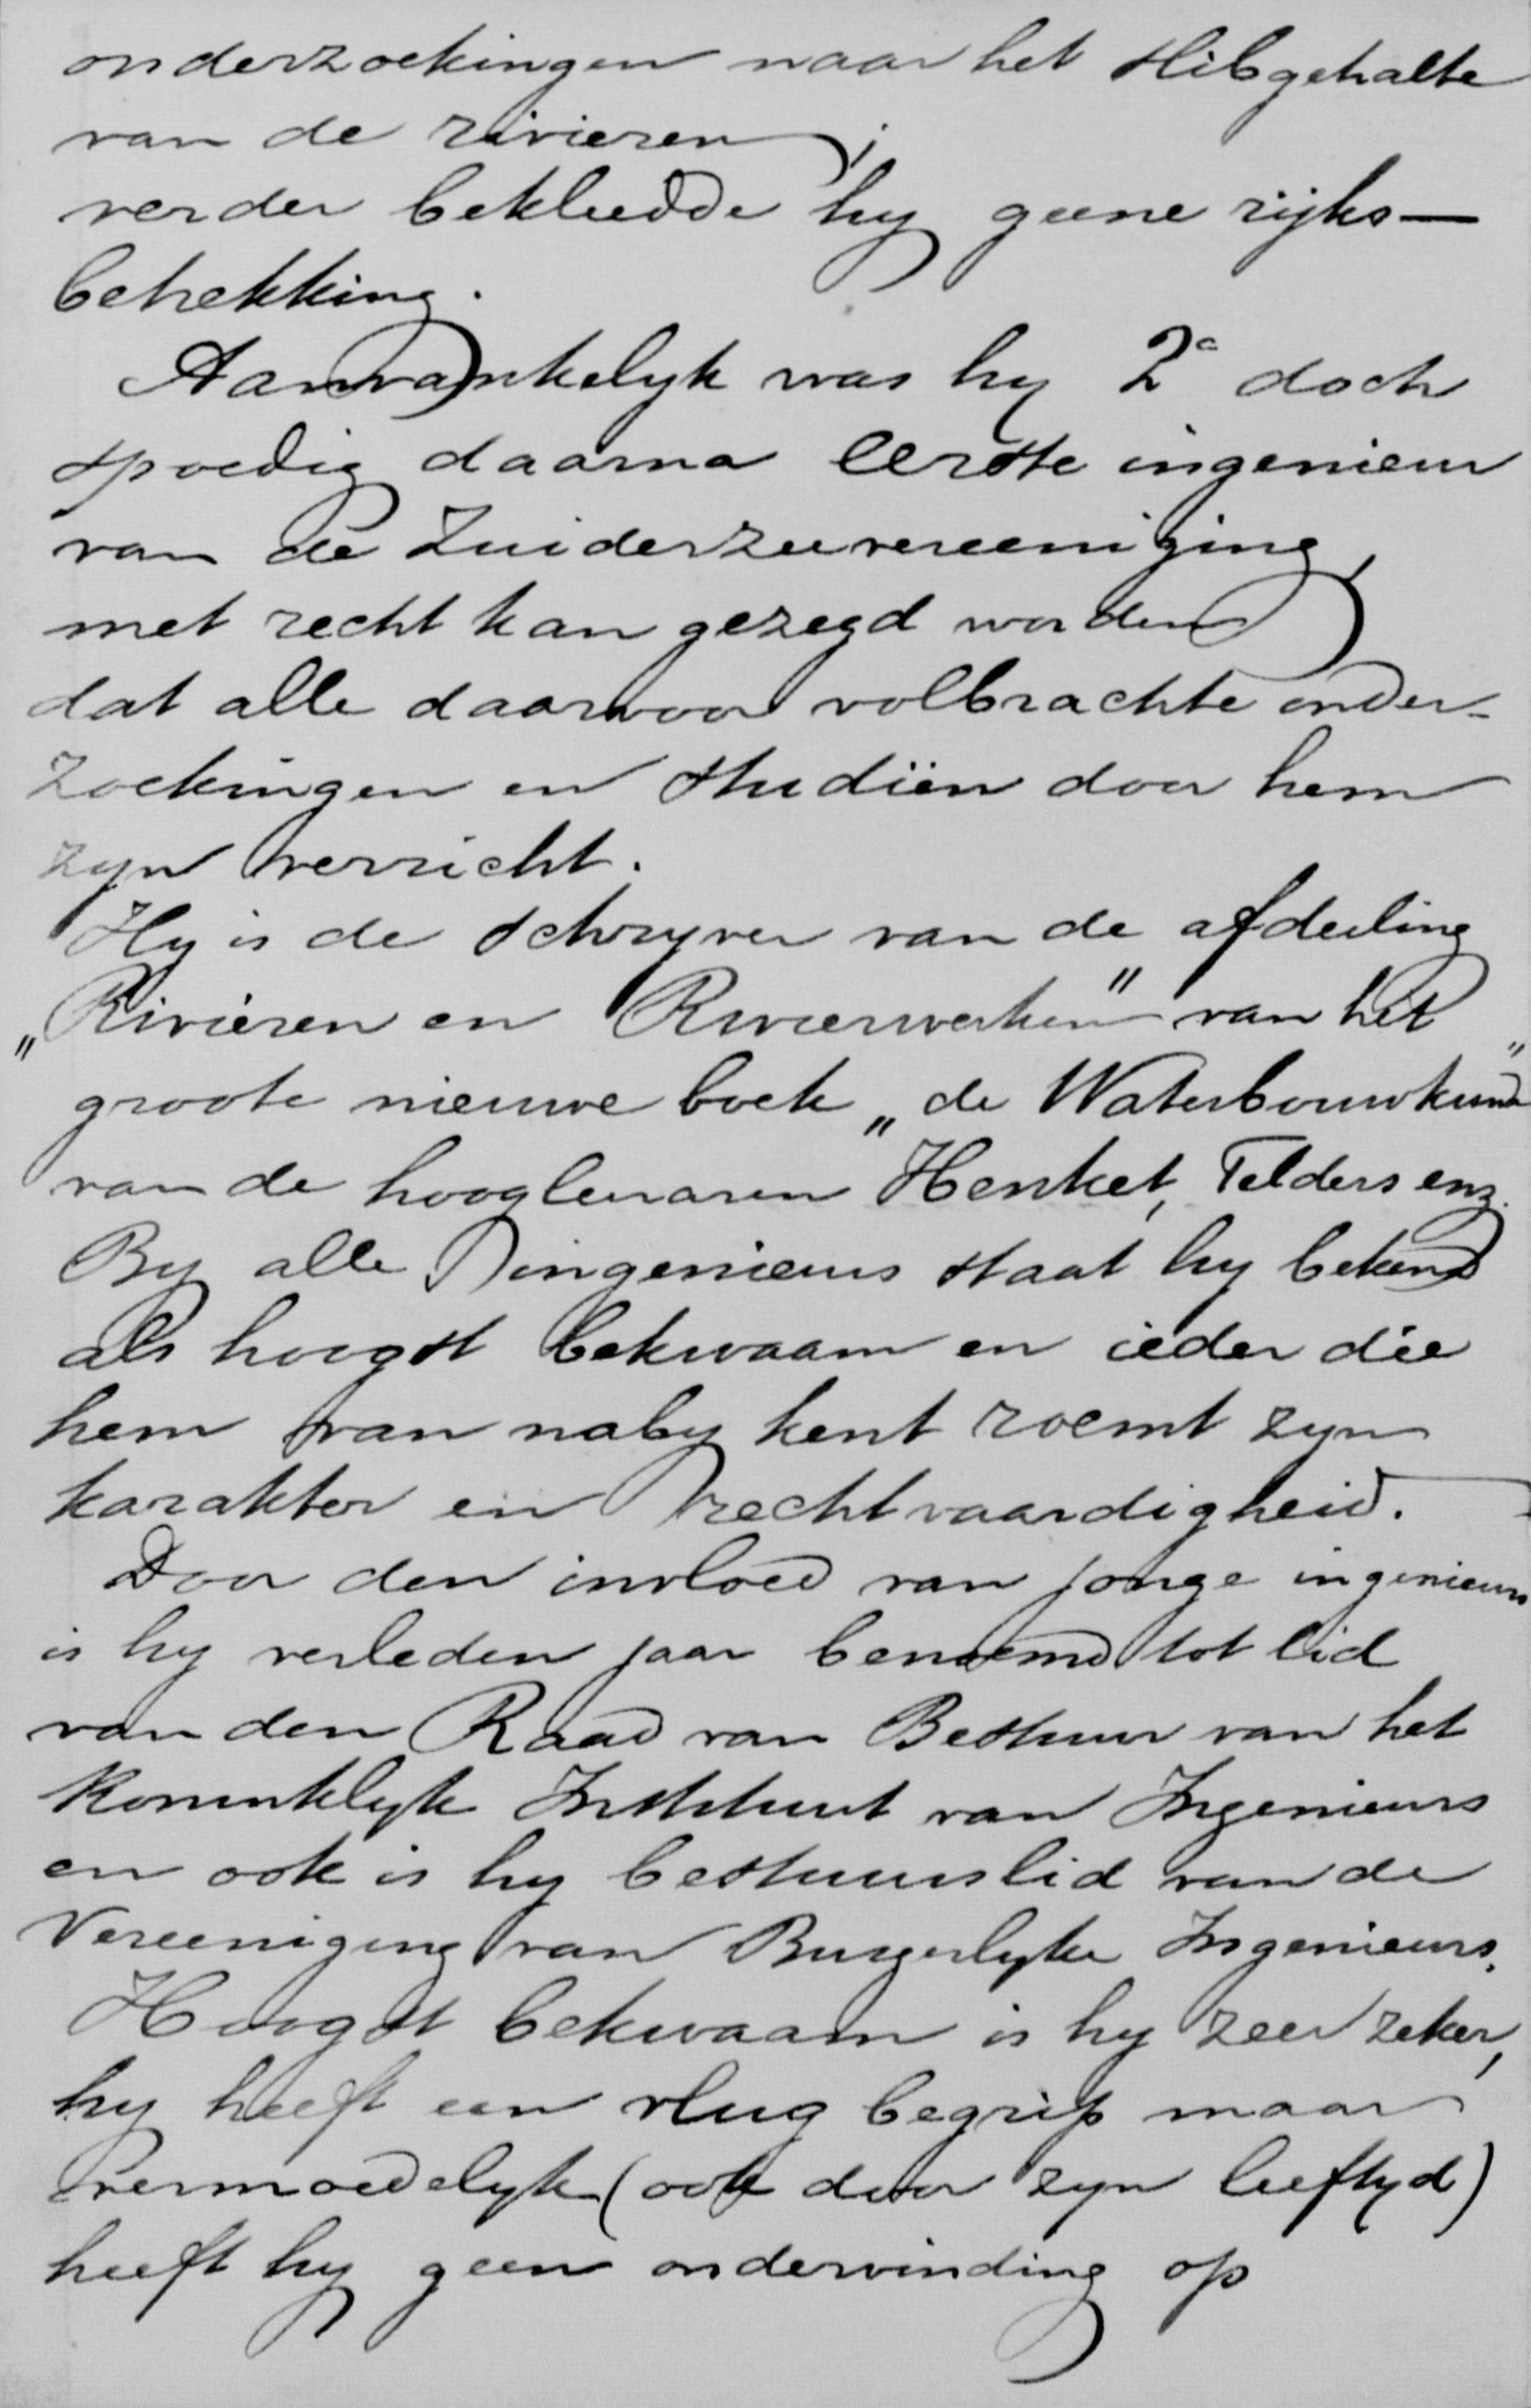 onderzoekingen naar het slibgehalte
van de rivieren;
verder bekleedde hy geene rijks—
betrekking.
Aanvankelyk was hy 2e doch
spoedig daarna eerste ingenieur
van de Zuiderzeevereeniging,
met recht kan gezegd worden
dat alle daarvoor volbrachte onder-
zoekingen en studiën door hem
zyn verricht.
Hy is de schryver van de afdeeling
„Rivieren en Rivierwerken" van het
groote nieuwe boek „de Waterbouwkunde"
van de hoogleeraren Henket, Telders enz.
By alle ingenieurs staat hy bekend
als hoogst bekwaam en ieder die
hem van naby kent roemt zyn
karakter en rechtvaardigheid.
Door den invloed van jonge ingenieurs
is hy verleden jaar benoemd tot lid
van den Raad van Bestuur van het
Koninklyk Instituut van Ingenieurs
en ook is hy bestuurslid van de
Vereeniging van Burgerlyke Ingenieurs.
Hoogst bekwaam is hy zeer zeker,
hy heeft een vlug begrip maar
vermoedelyk (ook door zyn leeftyd)
heeft hy geen ondervinding op